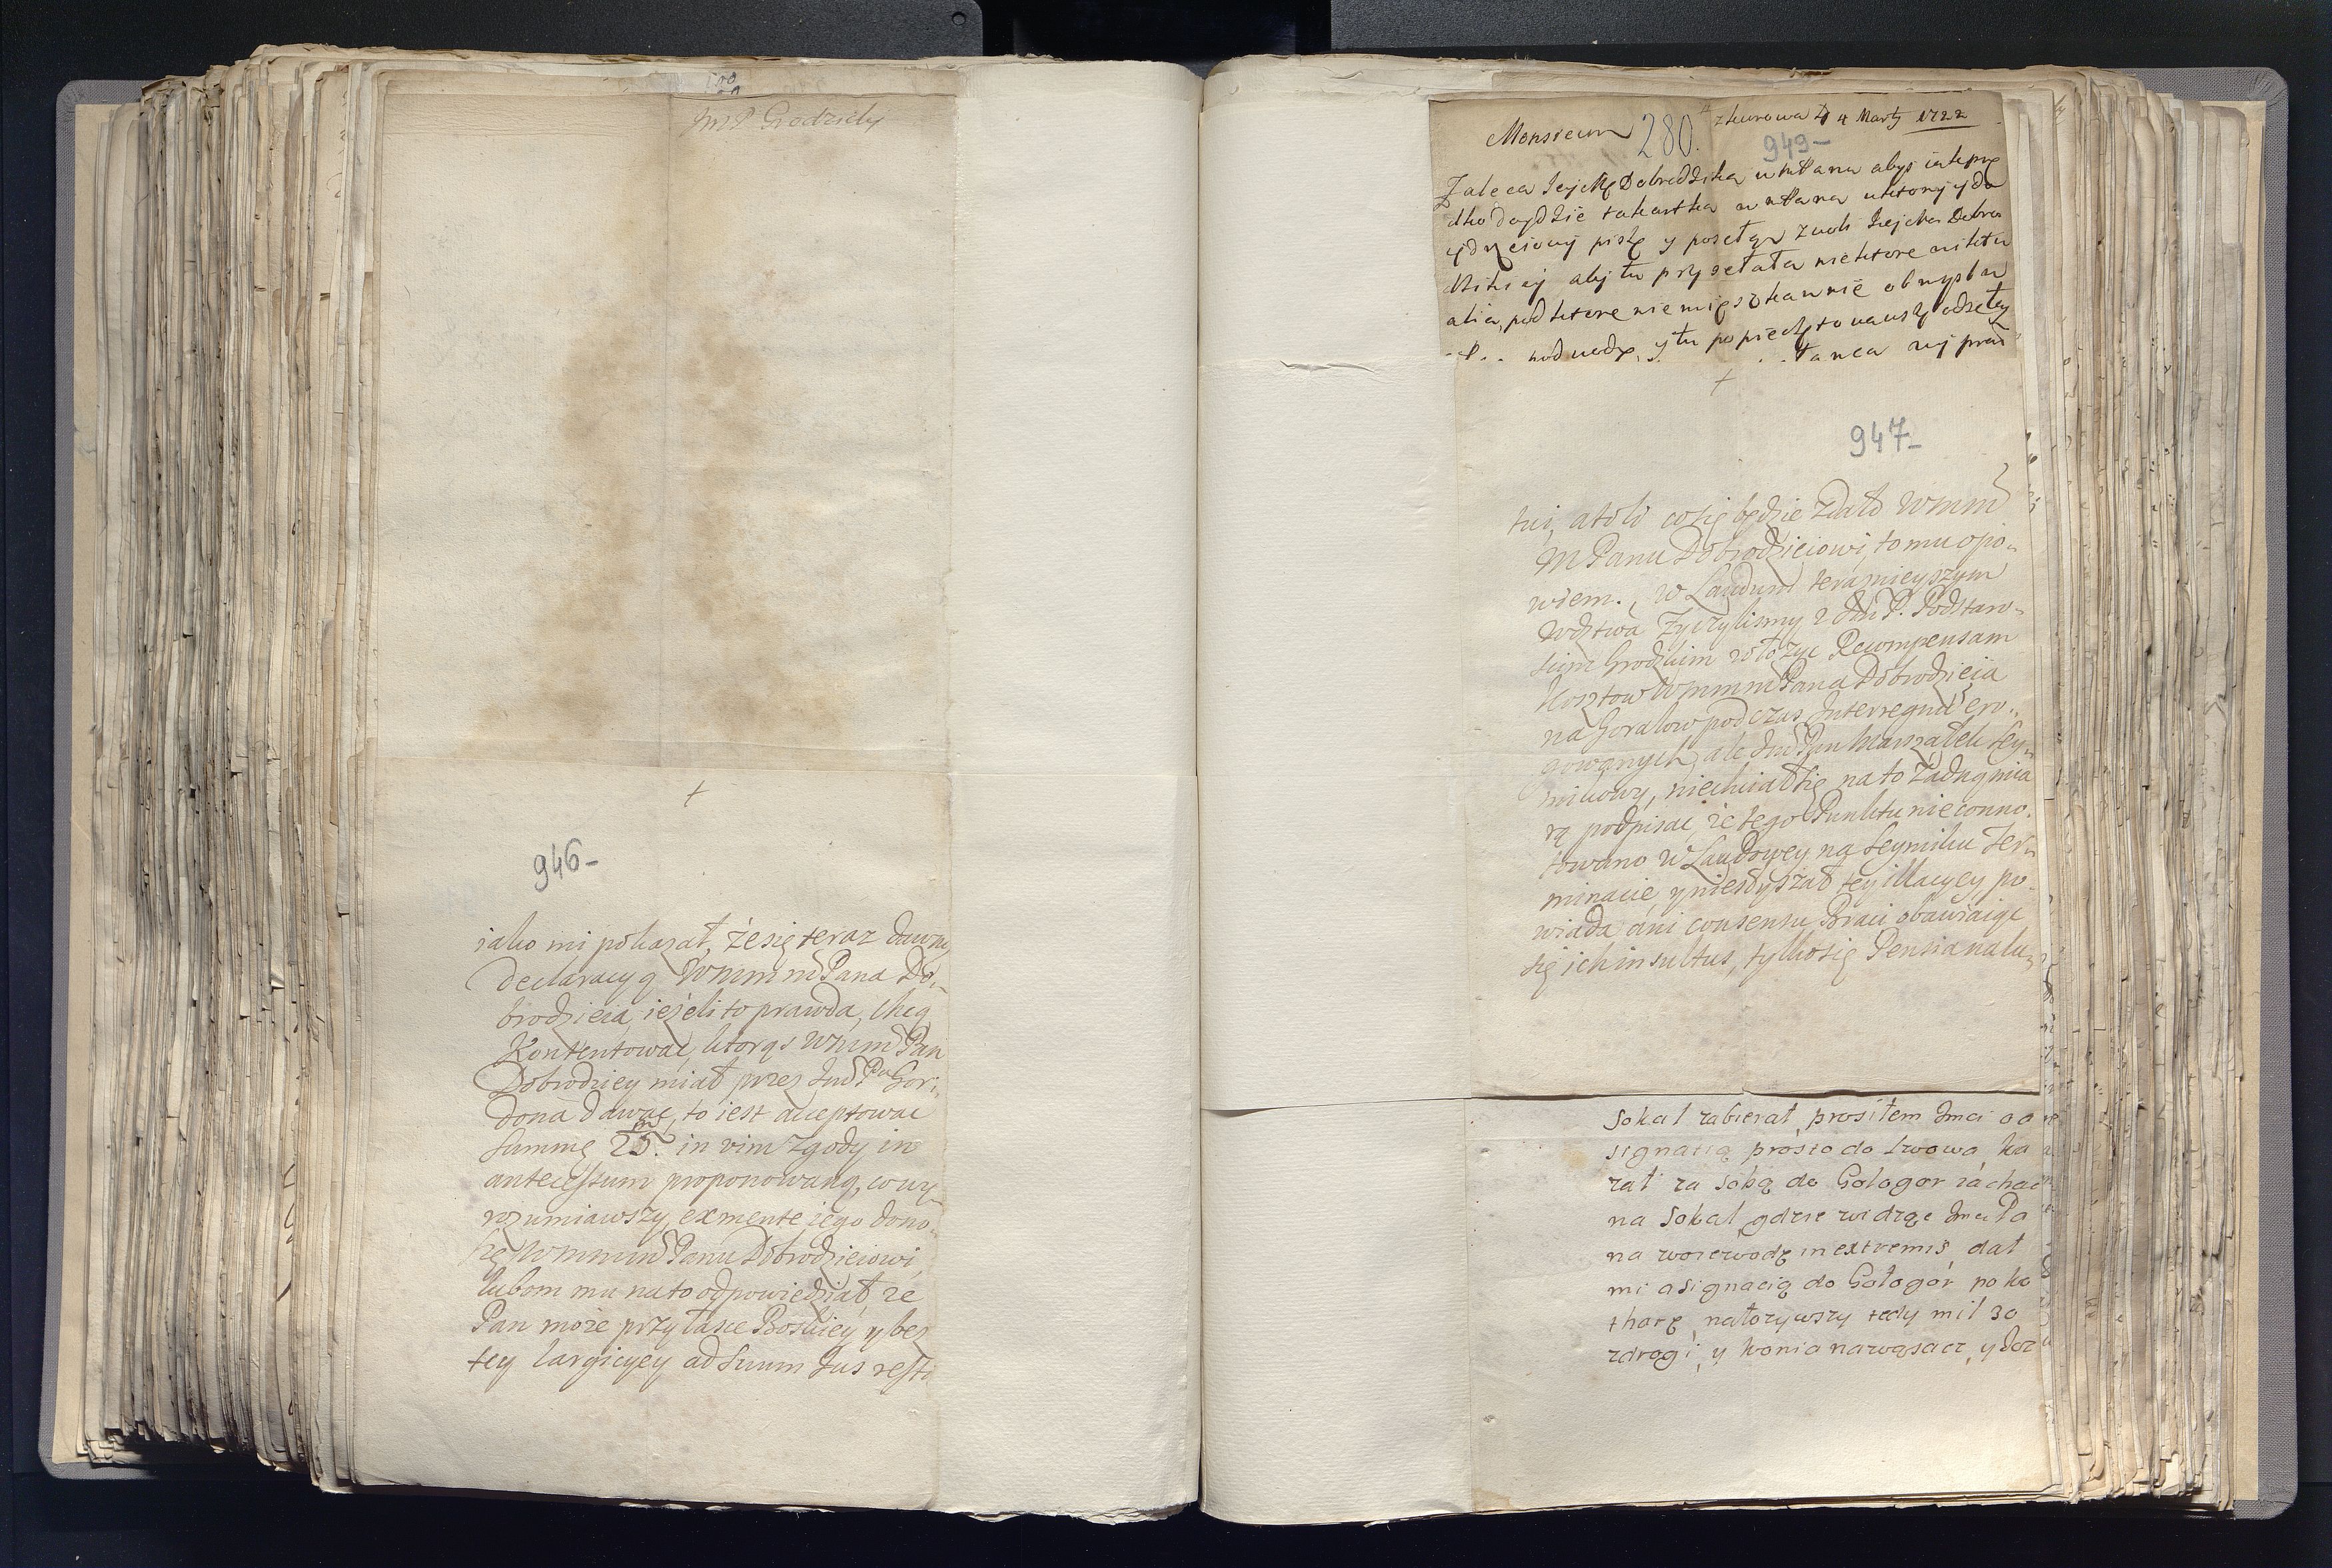 100
Jm P Grodzicky
+
946-
iako mi pokazał, że się teraz dawną
declaracyą Wmm m Pana Do-
brodzieia, ieżeli to prawda, chcą
Kontentować, ktorąś Wmm Pan
Dobrodziey miał przez Jmć Pa Gor-
dona dawać, to iest acceptować
summę 25 m in vim zgody in
antecessum proponowaną, co wy-
rozumiawszy, ex mente iego dono-
szę Wmmm Panu Dobrodzieiowi,
lubom mu na to odpowiedział, że
Pan może przy łasce Boskiey y bez
tey largicyey ad suum Jus resti
Monsieur 280. z Kurowa D 4 Marty 1722
949-
Zaleca Jejmć Dobrodzika
dko dojdzie ta kartka
piszę y posełąm z woli Jejmci Dobro
dziki aby tu przysełała niektore
alia, pod ktore nie mięszkannie
pod wodę, y tu odsełay
+
947-
tui, atoli co się będzie zdało Wmm
M Panu Dobrodzieiowi, to mu opo-
wiem. W Laudum teraznieyszym
Wdztwa życzylismy z Jm P. Podstaro-
scim Grodzkim włożyc Recompensam
Kosztow Wmmm Pana Dobrodzieia
na Goralow podczas Interregnu ero-
gowanych, ale Jmć Pan Marszałek sey-
mikowy, niechciał się na to żadną mia
rą podpisać, że tego Punktu nie conno-
towano w Laudowey na seymiku Ter-
minacie, y niesłyszał tey illacyey po-
wiada ani consensu Braci obawiaiąc
się ich insultus, tylko się Pensia nalu-
Sokal zabierał, prosiłem Jmci o a
signacią prosto do Lwowa, ka
zał za sobą do Gołogor iachać
na Sokal, gdzie widząc Jmci Pa
na woiewodę in extremis, dał
mi asignacią do Gołogór po ka
tharę, nałozywszy tedy mil 30
zdrogi, y konia narwąsacz, y doz